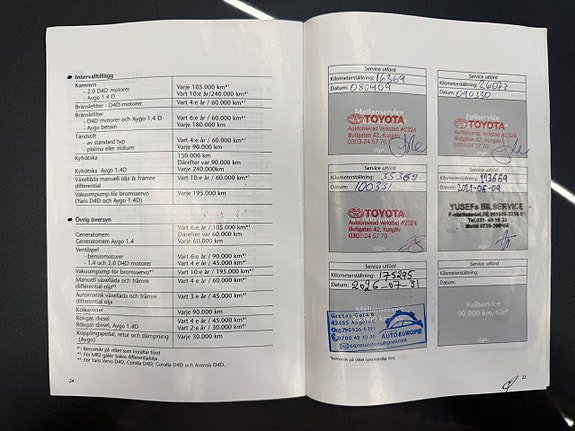 Intervalltillägg
Kamrem
- 2.0 D4D motorer Varje 105.000 km*¹
- Aygo 1.4 D Vart 10:e år/240.000 km*¹
Bränslefilter - D4D-motorer Vart 4:e år/60.000 km*¹
Bränslefilter
- D4D motorer och Aygo 1.4 D Vart 6:e år/60.000 km*¹
- Aygo bensin Varje 180.000 km
Tändstift
- av standard typ Vart 4:e år/60.000 km*¹
- platina eller iridium Varje 90.000 km
Kylvätska 150.000 km
Därefter var 90.000 km
Kylvätska Aygo 1.4D Varje 240.000km
Växellåda manuell olja & främre Vart 4:e år/60.000 km*¹
differential
Vakuumpump för bromsservo Varje 195.000 km
(Yaris D4D och Aygo 1.4D)
Övrig översyn
Vart 6:e år/105.000 km*¹
Generatorrem Därefter var 60.000 km
Generatorrem Aygo 1.4 Varje 60.000 km
Ventilspel
- bensinmotorer Vart 6:e år/90.000 km*¹
- 1.4 och 2.0 D4D motorer Vart 4:e år/45.000 km*¹
Vakuumpump för bromsservo*³ Vart 10:e år/195.000 km*¹
Manuell växellåda och främre Vart 4:e år/60.000 km*¹
differential olja²
Automatisk växellåda och främre Vart 3:e år/45.000 km*¹
differential olja²
Kolkanister Varje 90.000 km
Rökgas diesel Vart 4:e år/45.000 km*¹
Rökgas diesel, Aygo 1.4D Vart 2:a år/30.000 km*¹
Kopplingspedal, retur och dämpning Varje 30.000 km
(Aygo)
*¹: Beroende på vilket som inträffar först
*²: För MR2 gäller bakre differentialolja
*³: För Yaris Verso D4D, Corolla D4D, Corolla Verso D4D och Avensis D4D.
24
Service utförd
Kilometerställning: 16369
Datum: 080409
Mellanservice
TOYOTA
Auktoriserad Verkstad #2324
Bultgatan 42, Kungälv
0303-24 57 70
Service utförd
Kilometerställning: 26073
Datum: 090330
Fullservice
TOYOTA
Auktoriserad Verkstad #2324
Bultgatan 42, Kungälv
0303-24 57 70
Service utförd
Kilometerställning: 35369
Datum: 100331
TOYOTA
Auktoriserad Verkstad #2324
Bultgatan 42, Kungälv
0303-24 57 70
Service utförd
Kilometerställning:
Datum: 2021-06-09
YUSEFs BILSERVICE
Service utförd
Kilometerställning: 175275
Datum: 2026-07-31
Gretas Gata 6
42455 Angered
0700 40 30 30
AUTOEUROPE
Service utförd
Kilometerställning:
Datum:
Fullservice
90.000 km/6år*
sign:
*Beroende på vilket som inträffar först
25